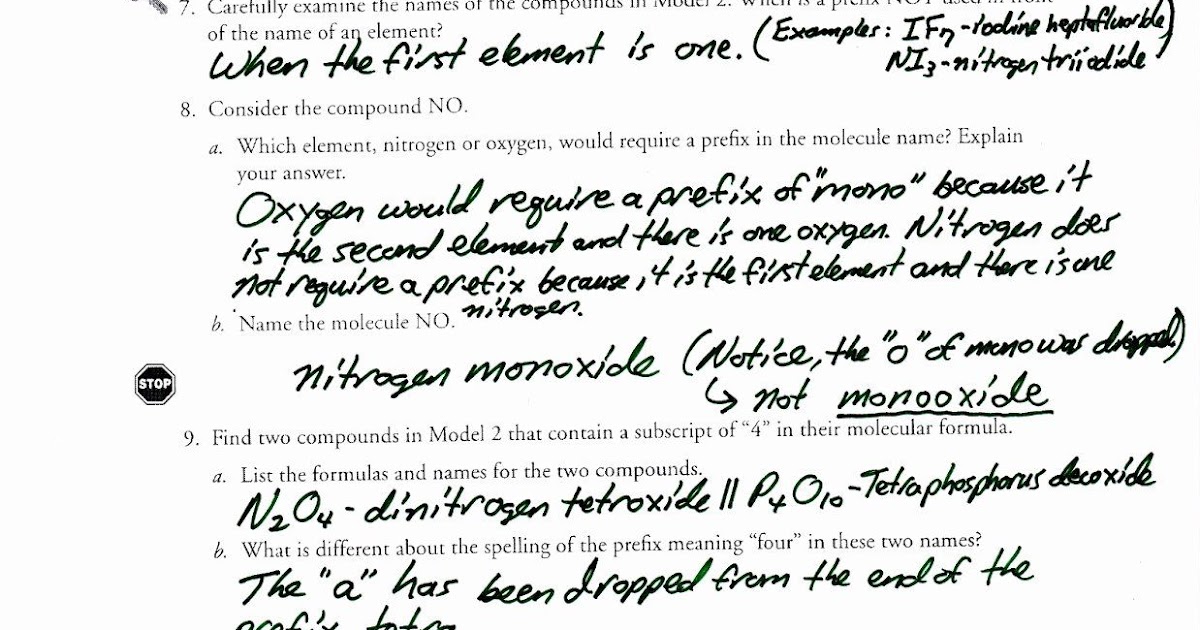 7. Carefully examine the names of the compounds in Model 2. When is a prefix NOT used in front
of the name of an element?
When the first element is one. (Examples: IF7-Iodine heptafluoride)
NI3-nitrogen triiodide
8. Consider the compound NO.
a. Which element, nitrogen or oxygen, would require a prefix in the molecule name? Explain
your answer.
Oxygen would require a prefix of "mono" because it
is the second element and there is one oxygen. Nitrogen does
not require a prefix because it is the first element and there is one
nitrogen.
b. Name the molecule NO.
nitrogen monoxide (Notice, the "o" of mono was dropped)
↳ not monooxide
STOP
9. Find two compounds in Model 2 that contain a subscript of "4" in their molecular formula.
a. List the formulas and names for the two compounds.
N2O4 - dinitrogen tetroxide || P4O10 - Tetraphosphorus decoxide
b. What is different about the spelling of the prefix meaning "four" in these two names?
The "a" has been dropped from the end of the
prefix tetra